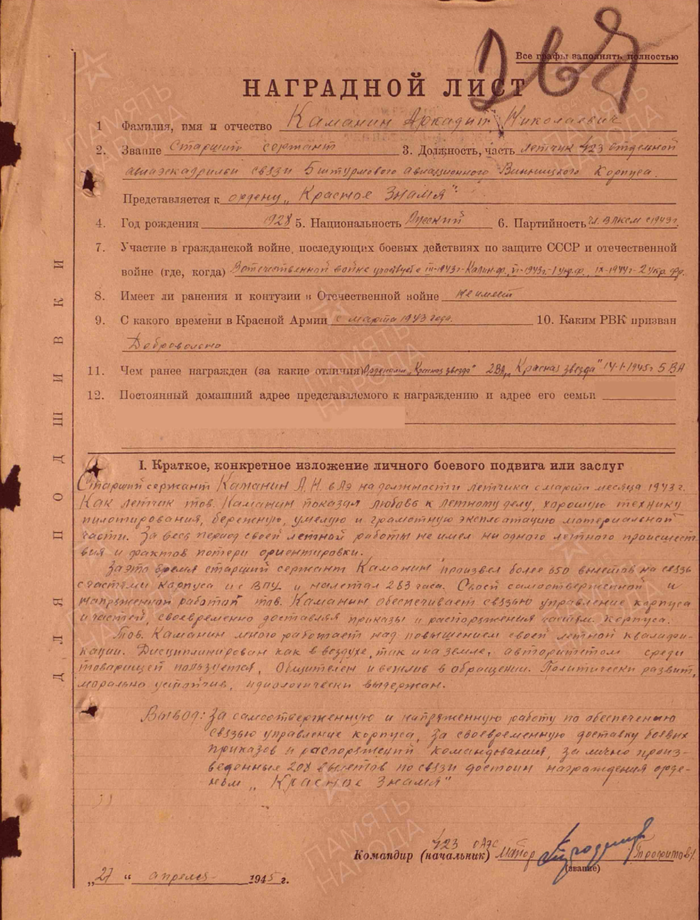 267
Все графы заполнять полностью
НАГРАДНОЙ ЛИСТ
1 Фамилия, имя и отчество Каманин Аркадий Николаевич
2. Звание Старший сержант 3. Должность, часть летчик 423 отдельной
авиаэскадрильи связи 5 штурмового авиационного Винницкого Корпуса
Представляется к ордену „Красное Знамя"
4. Год рождения 1928 5. Национальность Русский 6. Партийность чл. ВЛКСМ с 1943 г.
7. Участие в гражданской войне, последующих боевых действиях по защите СССР и отечественной
войне (где, когда) В отечественной войне участвует с III-1943 г-Калин.ф, VI-1943г-1 укр.ф, IX-1944г-2 укр. фр.
8. Имеет ли ранения и контузии в Отечественной войне не имеет
9. С какого времени в Красной Армии с марта 1943 года. 10. Каким РВК призван
Добровольно
11. Чем ранее награжден (за какие отличия) „Красная звезда" 2ВА, „Красная звезда" 14-1-1945г 5 ВА
12. Постоянный домашний адрес представляемого к награждению и адрес его семьи
I. Краткое, конкретное изложение личного боевого подвига или заслуг
Старший сержант Каманин А.Н в АЭ на должности летчика с марта месяца 1943 г.
Как летчик тов. Каманин показал любовь к летному делу, хорошую технику
пилотирования, бережную, умелую и грамотную эксплатацию материальной
части. За весь период своей летной работы не имел ни одного летного происшест
вия и фактов потери ориентировки.
За это время старший сержант Каманин произвел более 650 вылетов на связь
с частями корпуса и с ВПУ и налетал 283 часа. Своей самоотверженной и
напряженной работой тов. Каманин обеспечивает связью управление корпуса
и частей, своевременно доставляя приказы и распоряжения частям корпуса.
Тов. Каманин много работает над повышением своей летной квалифи
кации. Дисциплинирован как в воздухе, так и на земле, авторитетом среди
товарищей пользуется, общителен и вежлив в обращении. Политически развит,
морально устойчив, идеологически выдержан.
Вывод: За самоотверженную и напряженную работу по обеспечению
связью управление корпуса, за своевременную доставку боевых
приказов и распоряжений командования, за лично произ-
веденных вылетов по связи достоин награждения орде-
ном „Красное Знамя"
423 ОАЭС
Командир (начальник) Майор Трофимов
(звание)
„27" апреля 1945 г.
ДЛЯ ПОДШИВКИ
ПАМЯТЬ НАРОДА